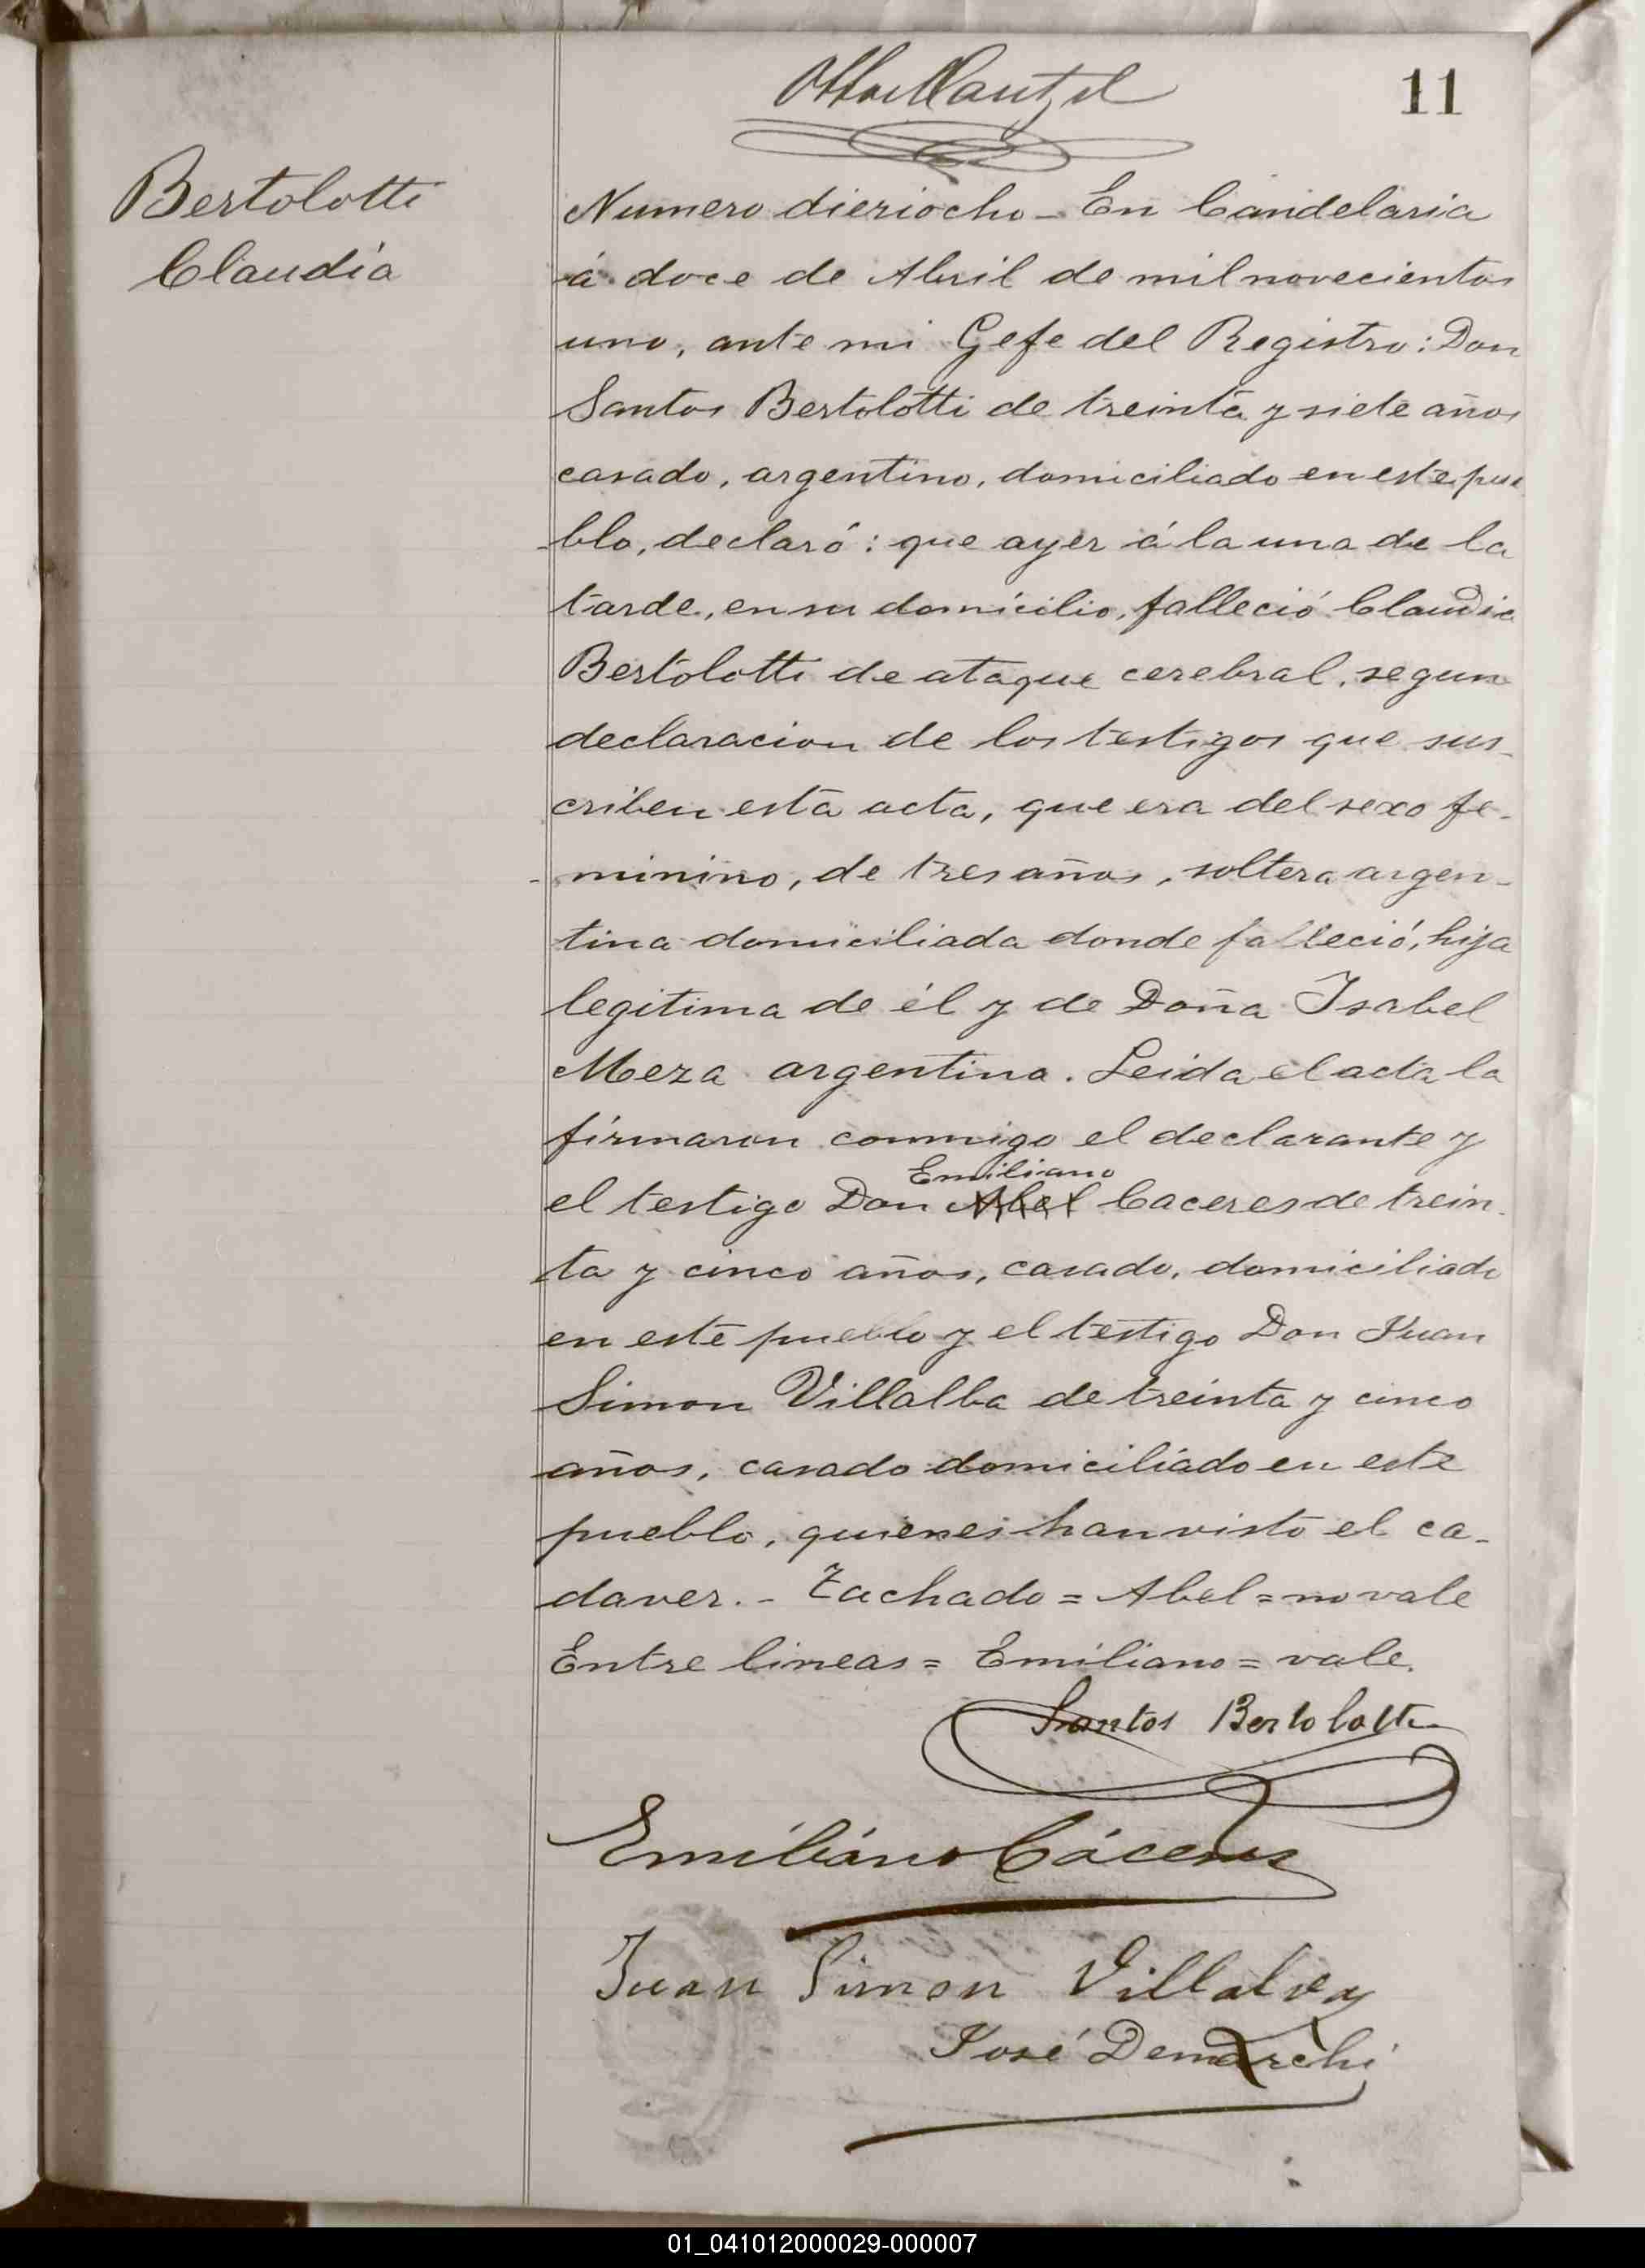 11
Bertolotti
Claudia
Numero dieziocho - En Candelaria
á doce de Abril de mil novecientos
uno, ante mi Gefe del Registro: Don
Santos Bertolotti de treinta y siete años
casado, argentino, domiciliado en este pue
blo, declaró: que ayer á la una de la
tarde, en su domicilio, falleció Claudia
Bertolotti de ataque cerebral, segun
declaracion de los testigos que sus-
criben esta acta, que era del sexo fe-
minino, de tres años, soltera argen-
tina domiciliada donde falleció, hija
legitima de él y de Doña Isabel
Meza argentina. Leida el acta la
firmaron conmigo el declarante y
Emiliano
el testigo Don Abel Caceres de trein-
ta y cinco años, casado, domiciliado
en este pueblo y el testigo Don Juan
Simon Villalba de treinta y cinco
años, casado domiciliado en este
pueblo, quienes han visto el ca-
daver. - Tachado = Abel = no vale
Entre lineas = Emiliano = vale.
Santos Bertolotti
Emiliano Cáceres
Juan Simon Villalva
José Demarchi
01_041012000029-000007